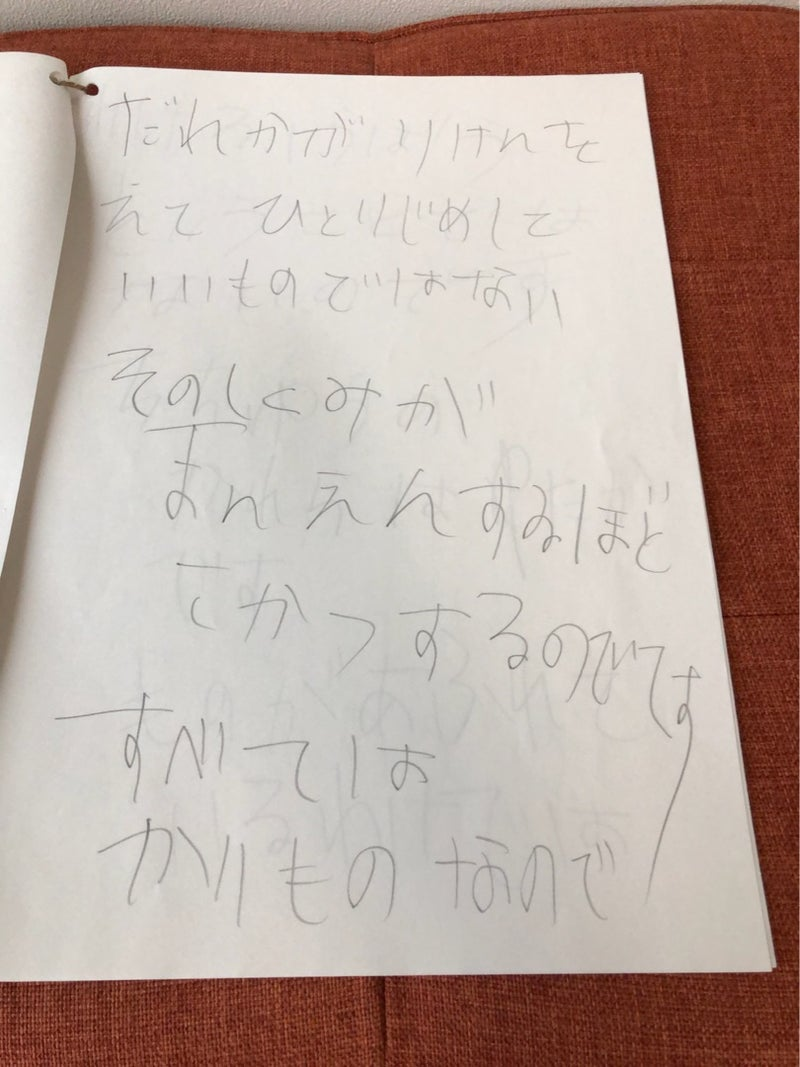 だれかが りけんを
えて ひとりじめして
いいものではない
そのしくみが
まんえんするほど
こかつするのです
すべては
かりものなので